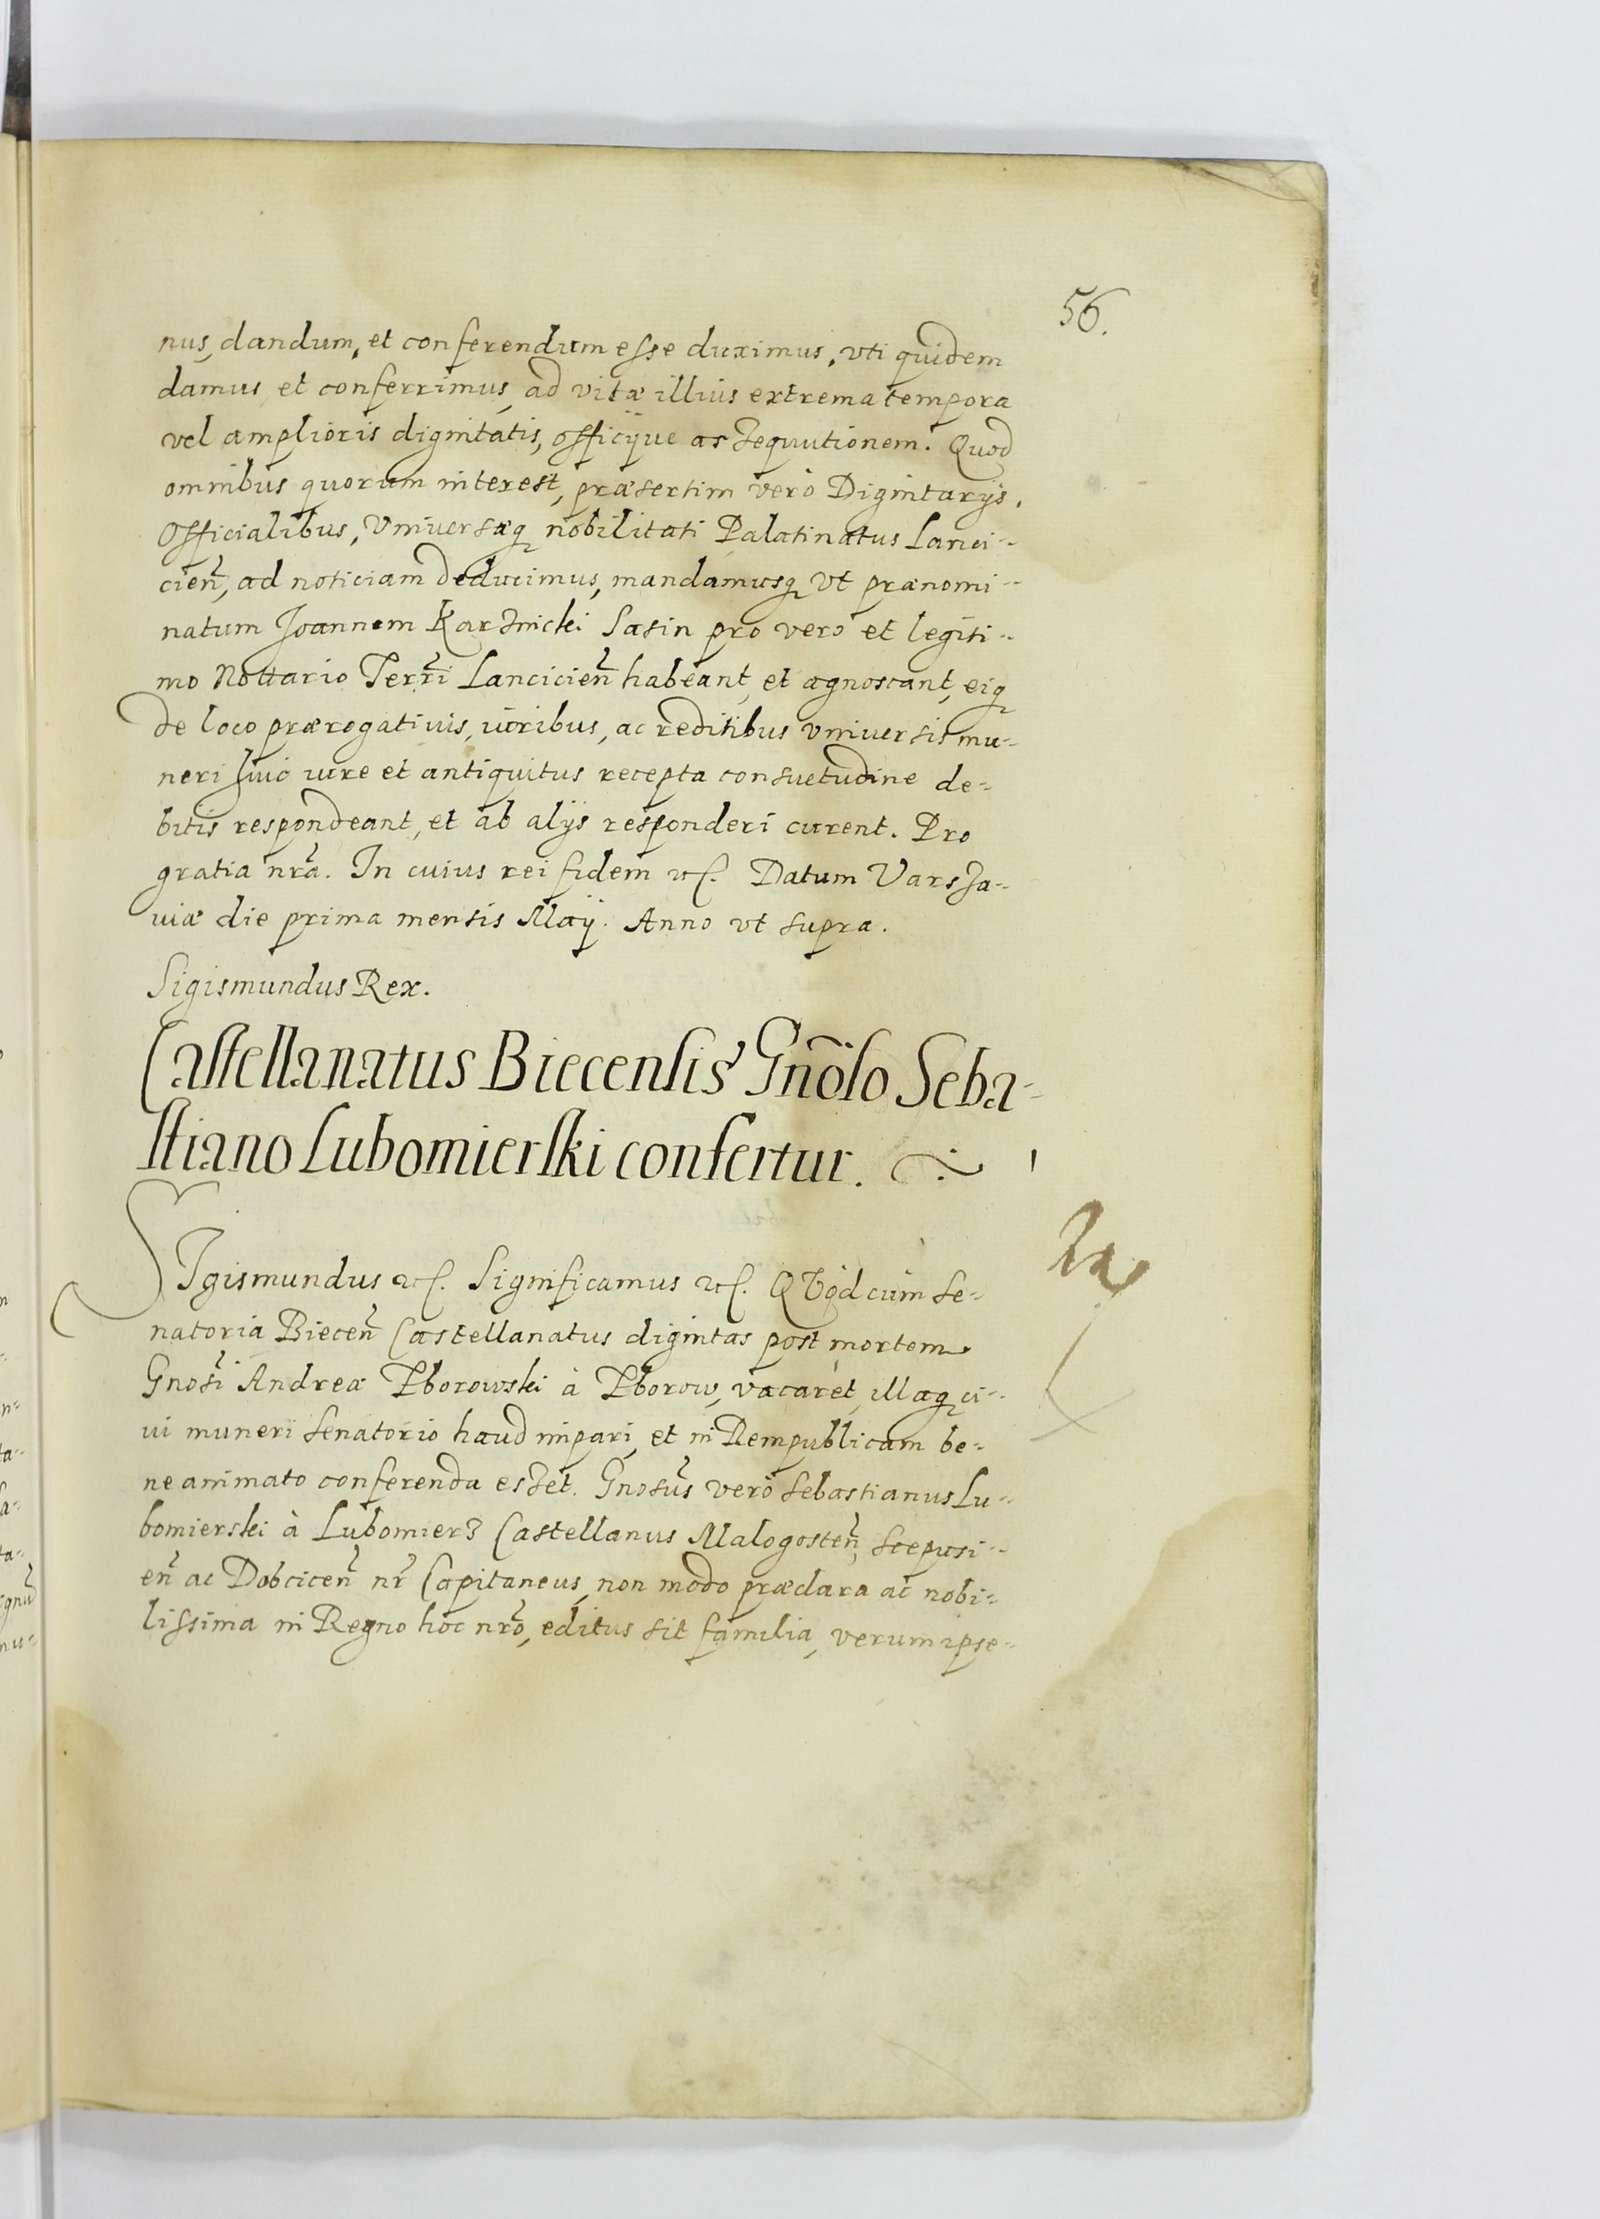 56.
nus, dandum, et conferendum esse duximus, vti quidem
damus, et conferrimus, ad vitæ illius extrema tempora
vel amplioris dignitatis, officijue assequutionem. Quod
omnibus quorum interest, præsertim vero Dignitarijs,
Officialibus, Vniversæq nobilitati Palatinatus Lanci-
cien̄, ad noticiam deducimus, mandamusq vt prænomi-
natum Joannem Karsnicki Sasin pro vero et legiti-
mo Nottario Terr̄i Lancicien̄ habeant, et agnoscant, eiq
de loco prærogativis, iuribus, ac reditibus vniversis mu-
neri suo iure et antiquitus recepta consuetudine de-
bitis respondeant, et ab alijs responderi curent. Pro
gratia nr̄a. In cuius rei fidem etc. Datum Varsza-
uiæ die prima mensis Maij. Anno vt supra.
Sigismundus Rex.
Castellanatus Biecensis Gn̄oso Seba-
stiano Lubomierski confertur.
SIgismundus etc. Significamus etc. QVod cum se-
natoria Biecen̄ Castellanatus dignitas post mortem
Gnosi Andreæ Zborowski à Zborow, vacaret, illaq ci-
ui muneri senatorio haud impari, et in Rempublicam be-
ne animato conferenda esset. Gnosus vero Sebastianus Lu-
bomierski à Lubomierz Castellanus Malogosten̄, Scepusi-
en̄ ac Dobcicen̄ nr̄ Capitaneus, non modo præclara ac nobi-
lissima in Regno hoc nr̄o, editus sit familia, verum ipse-